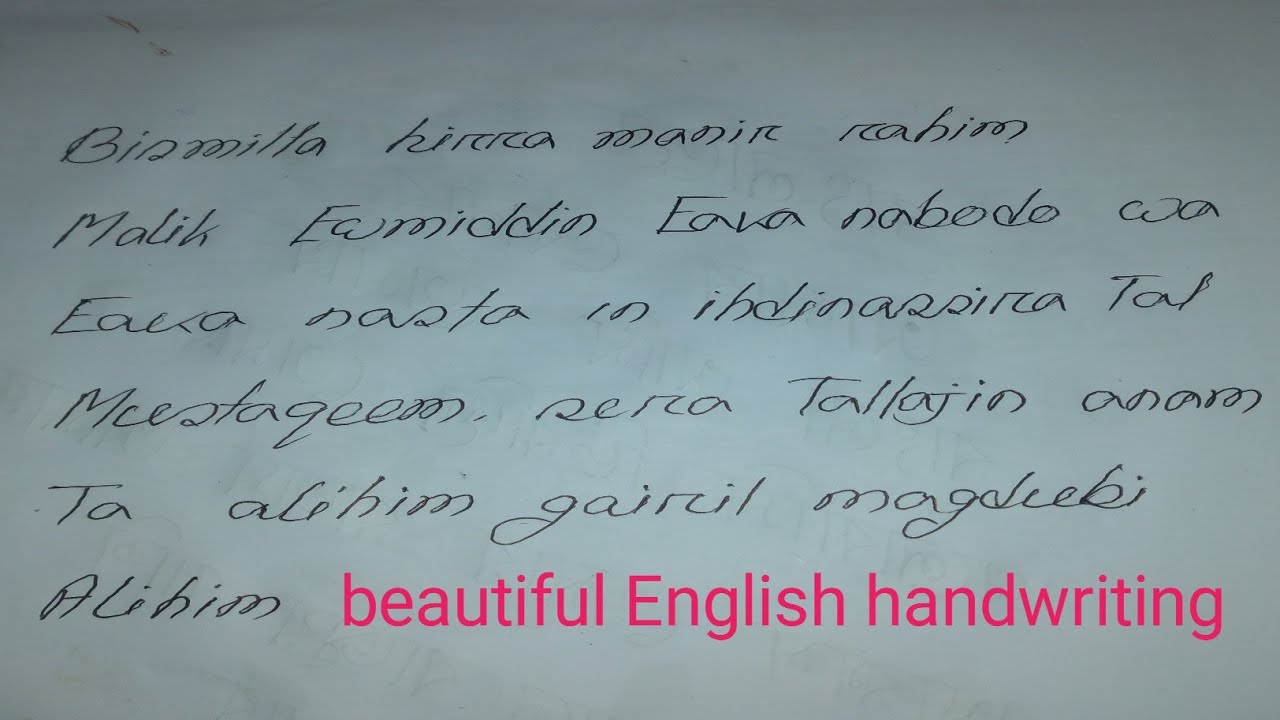 Bismilla hirra manir rahim
Malik Ewmiddin Eaka nabodo wa
Eaka nasta in ihdinassira Tal
Mustaqeem. sera Tallajin anam
Ta alihim gairil magdubi
Alihim beautiful English handwriting